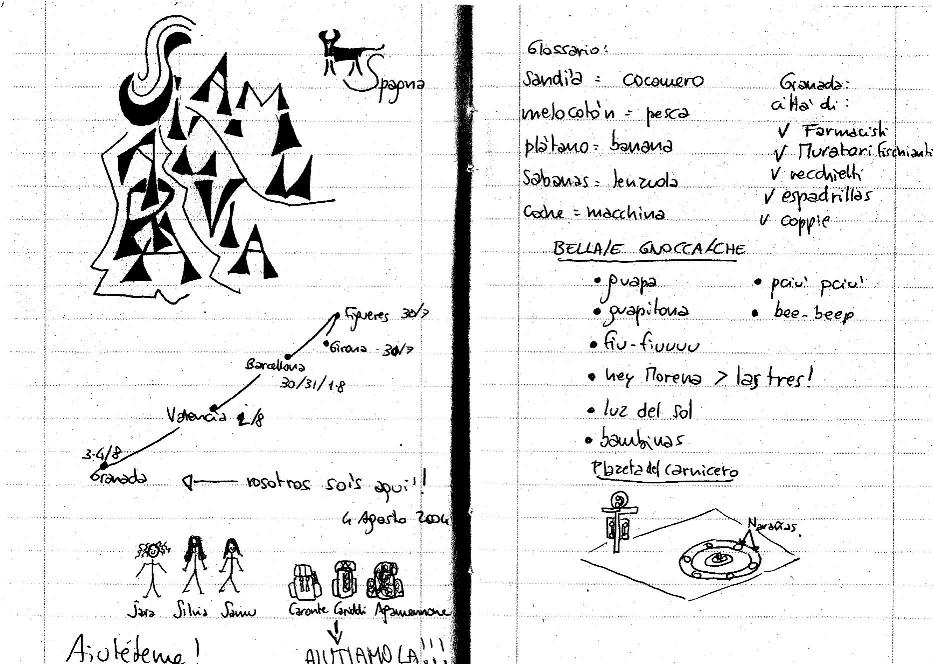 Spagna
Figueres 30/7
Girona - 30/7
Barcellona
30/31/1.8
Valencia 2/8
3-4/8
Granada
vosotros sois aquì!
4 Agosto 2004
Sara Silvia Samu
Caronte Cariddi Agamennone
Aiutéteme!
AIUTIAMOLA!!!
Glossario:
Sandìa = cocomero
melocotòn = pesca
plàtano = banana
Sabanas = lenzuola
Coche = macchina
Granada:
citta' di:
√ Farmacisti
√ Muratori fischianti
√ vecchietti
√ espadrillas
√ coppie
BELLA/E GNOCCA/CHE
• guapa
• guapitona
• fiu-fiuuuu
• hey Morena > las tres!
• luz del sol
• bambinas
• pciu' pciu'
• bee-beep
Plazeta del carnicero
Naranjas